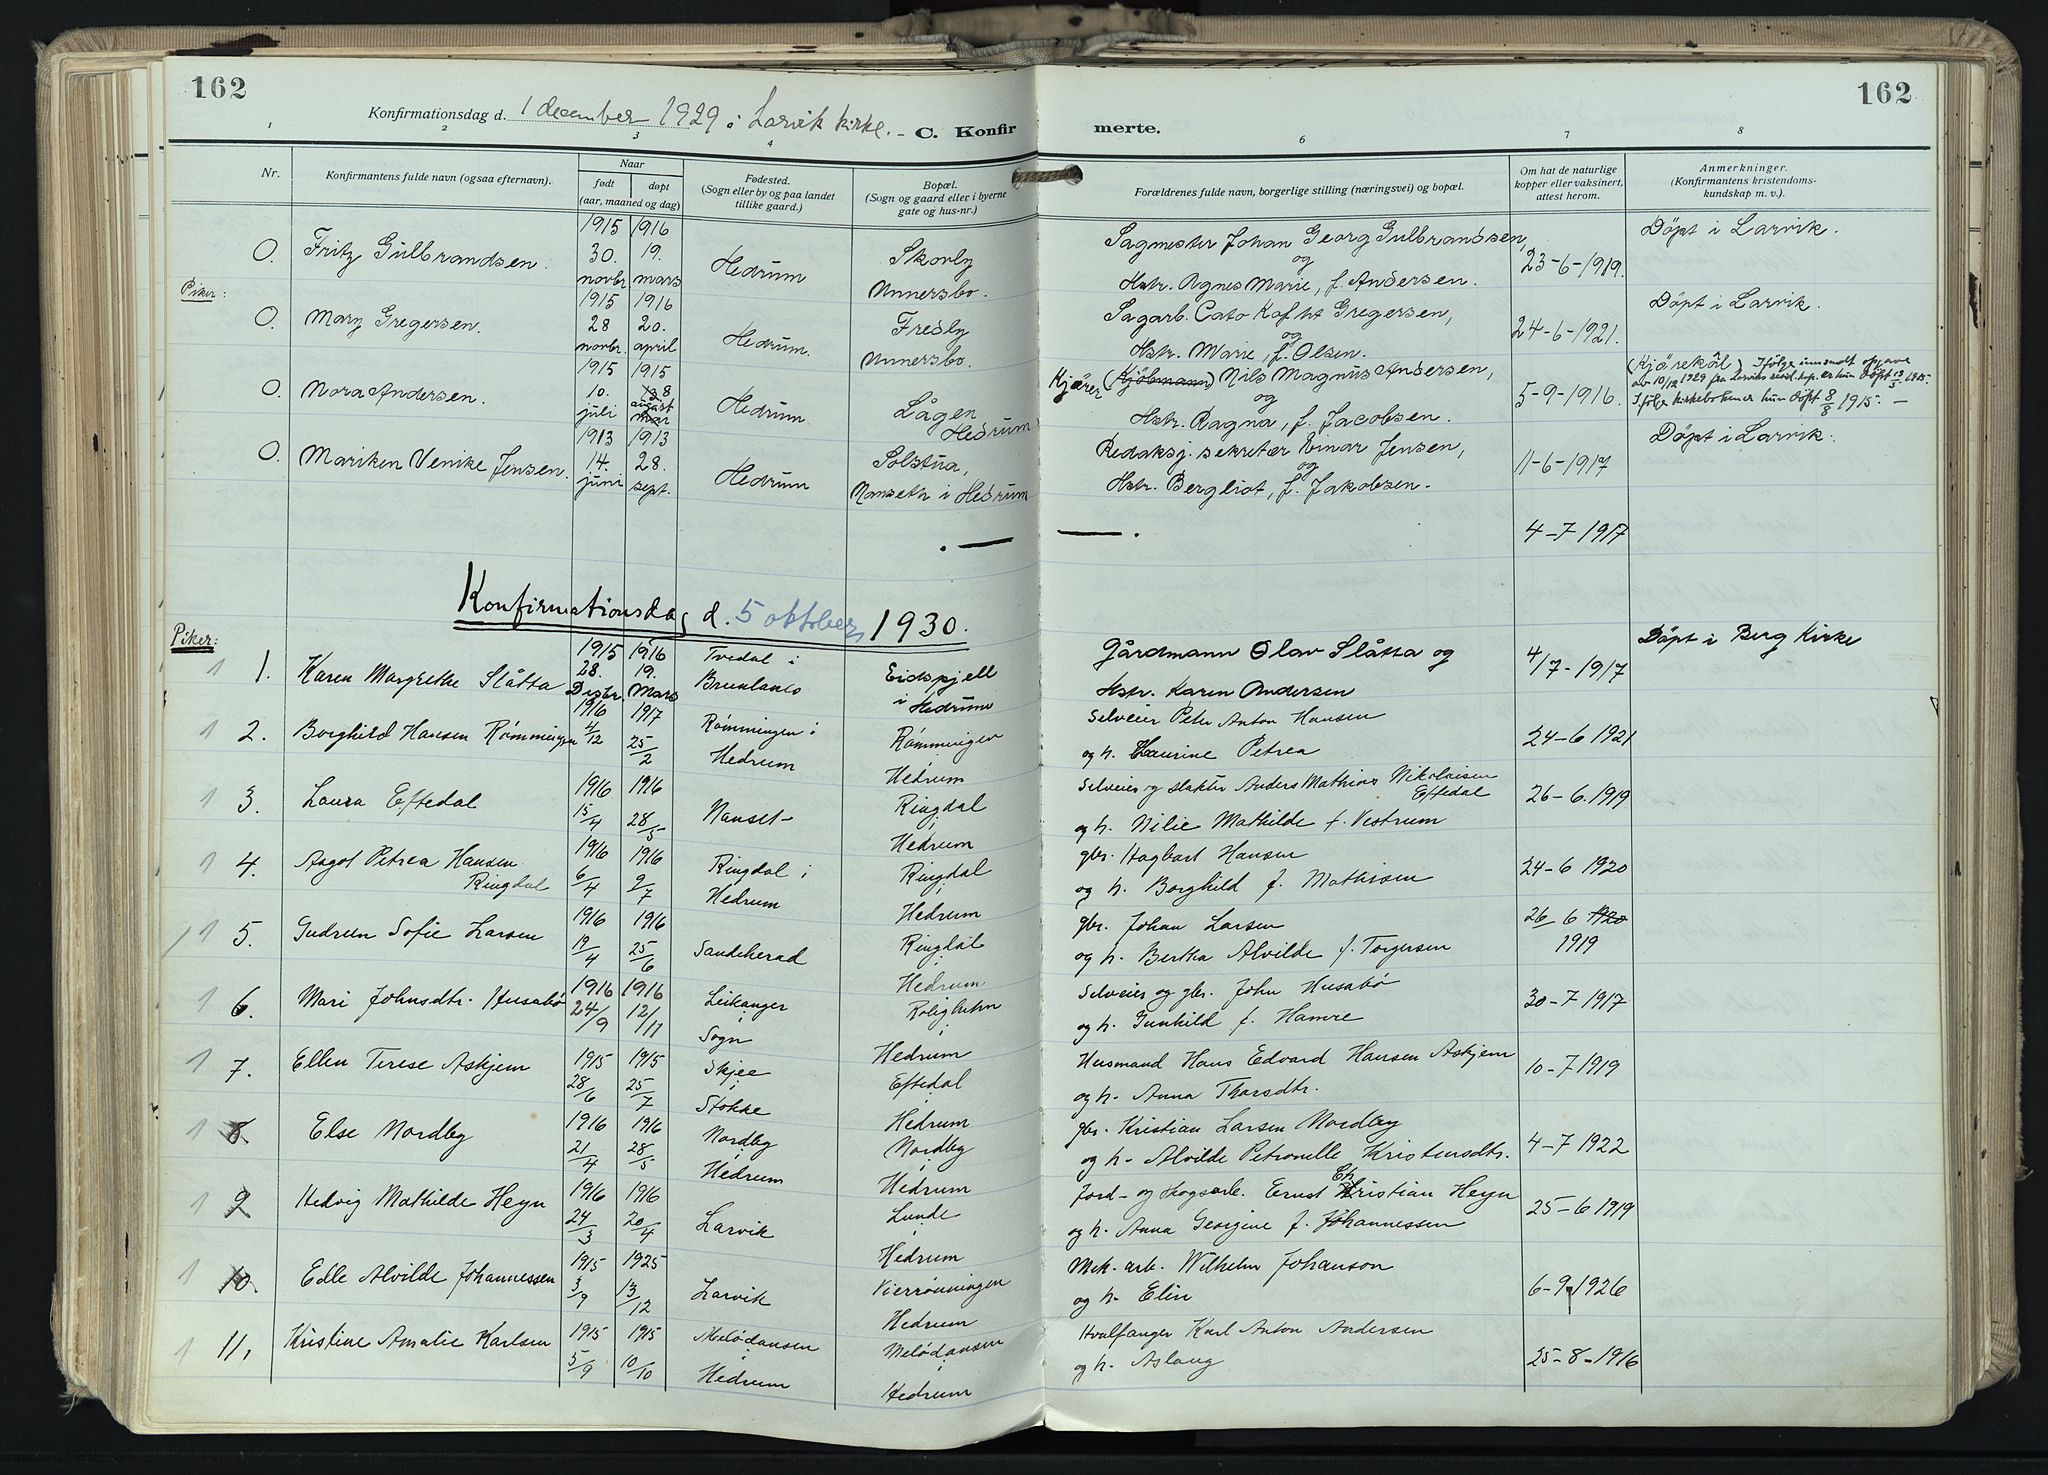 162
162
Konfirmationsdag d. 1 december 1929 i Larvik kirke. - C. Konfirmerte.
1 2 3 4 6 7 8
Nr.
Konfirmantens fulde navn (ogsaa efternavn).
Naar
født døpt
(aar, maaned og dag)
Fødested.
(Sogn eller by og paa landet
tillike gaard.)
Bopæl.
(Sogn og gaard eller i byerne
gate og hus-nr.)
Forældrenes fulde navn, borgerlige stilling (næringsvei) og bopæl.
Om hat de naturlige
kopper eller vaksinert,
attest herom.
Anmerkninger.
(Konfirmantens kristendoms-
kundskap m. v.).
O. Fritz Gulbrandsen. 1915 30. novbr 1916 19. mars Hedrum Skovly Unnersbo.
Sagmester Johan Georg Gulbrandsen,
og
Hstr. Agnes Marie, f. Andersen.
23-6-1919. Döpt i Larvik.
Piker:
O. Mary Gregersen. 1915 28 novbr. 1916 20. april Hedrum. Fredly Unnersbo.
Sagarb. Cato Gregersen,
og
Hstr. Marie, f. Olsen.
24-6-1921. Döpt i Larvik.
O. Nora Andersen. 1915 10. juli 1915 8 august Hedrum Lågen Hedrum
Kjører (Kjöbmann) Nils Magnus Andersen,
og
Hstr. Ragna, f. Jacobsen.
5-9-1916. (Kjærekål) Ifölge innsendt opgave
av 10/12 1929 fra Larviks er hun döpt 1915.
Ifölge kirkeboken er hun döpt 8/8 1915. -
O. Mariken Venike Jensen. 1913 14. juni 1913 28. sept. Hedrum Solstua, Nanseth i Hedrum
Redaksj. sekretær Einar Jensen,
og
Hstr. Bergliot, f. Jakobsen.
11-6-1917 Döpt i Larvik.
4-7 1917
Konfirmationsdag d. 5 oktober 1930.
Piker:
1 1. Karen Margrethe Slåtta 1915 28. Desbr. 1916 19. Mars Tvedal i Brunlanes Eidsfjell i Hedrum
Gårdmann Olav Slåtta og
Hstr. Karen Andersen
4/7-1917 Döpt i Berg Kirke
1 2. Borghild Hansen Rømmingen 1916 4/12 1917 25/2 Rømmingen i Hedrum Rømmingen Hedrum
Selveier Peter Anton Hansen
og h. Laurine Petrea
24-6 1921
1 3. Laura Eftedal 1916 15/4 1916 28/5 Nanset Ringdal i Hedrum
Selveier og slakter Anders Mathias Nikolaisen
Eftedal
og h. Nilie Mathilde f. Vestrum
26-6. 1919
1 4. Aagot Petrea Hansen Ringdal 1916 6/4 1916 9/7 Ringdal i Hedrum Ringdal i Hedrum
gbr. Hagbart Hansen
og h. Borghild f. Mathisen
24-6 1920
1 5. Gudrun Sofie Larsen 1916 19/4 1916 25/6 Sandeherad Ringdal i Hedrum
gbr. Johan Larsen
og h. Bertha Alvilde f. Torgersen
26-6 1920
1919
1 6. Mari Johnsdtr. Husabø 1916 24/9 1916 12/11 Leikanger i Sogn Rolighetn i Hedrum
Selveier og gbr. John Husabø
og h. Gunhild f. Hamre
30-7 1917
1 7. Ellen Terese Askjem 1915 28/6 1915 25/7 Skjee i Stokke Eftedal i Hedrum
Husmand Hans Edvard Hansen Askjem
og h. Anna Thorsdtr.
10-7 1919
1 8. Else Nordby 1916 21/4 1916 28/5 Nordby i Hedrum Nordby i Hedrum
gbr. Kristian Larsen Nordby
og h. Alvilde Petronelle Kristensdtr.
4-7 1922
1 9 Hedvig Mathilde Heyn 1916 24/3 1916 20/4 Larvik Lunde i Hedrum
Jord- og skogsarb. Ernst Christian Heyn
og h. Anna Georgine f. Johannessen
25-6 1919
1 10. Edle Alvilde Johannessen 1915 3/9 1925 13/12 Larvik Vierrønningen Hedrum
Mek. arb. Wilhelm Johanson
og h. Elin
6-9 1926
1 11, Kristine Amalie Karlsen 1915 5/9 1915 10/10 Melødansen i Hedrum Melødansen i Hedrum
Hvalfanger Karl Anton Andersen
og h. Aslaug
25-8-1916